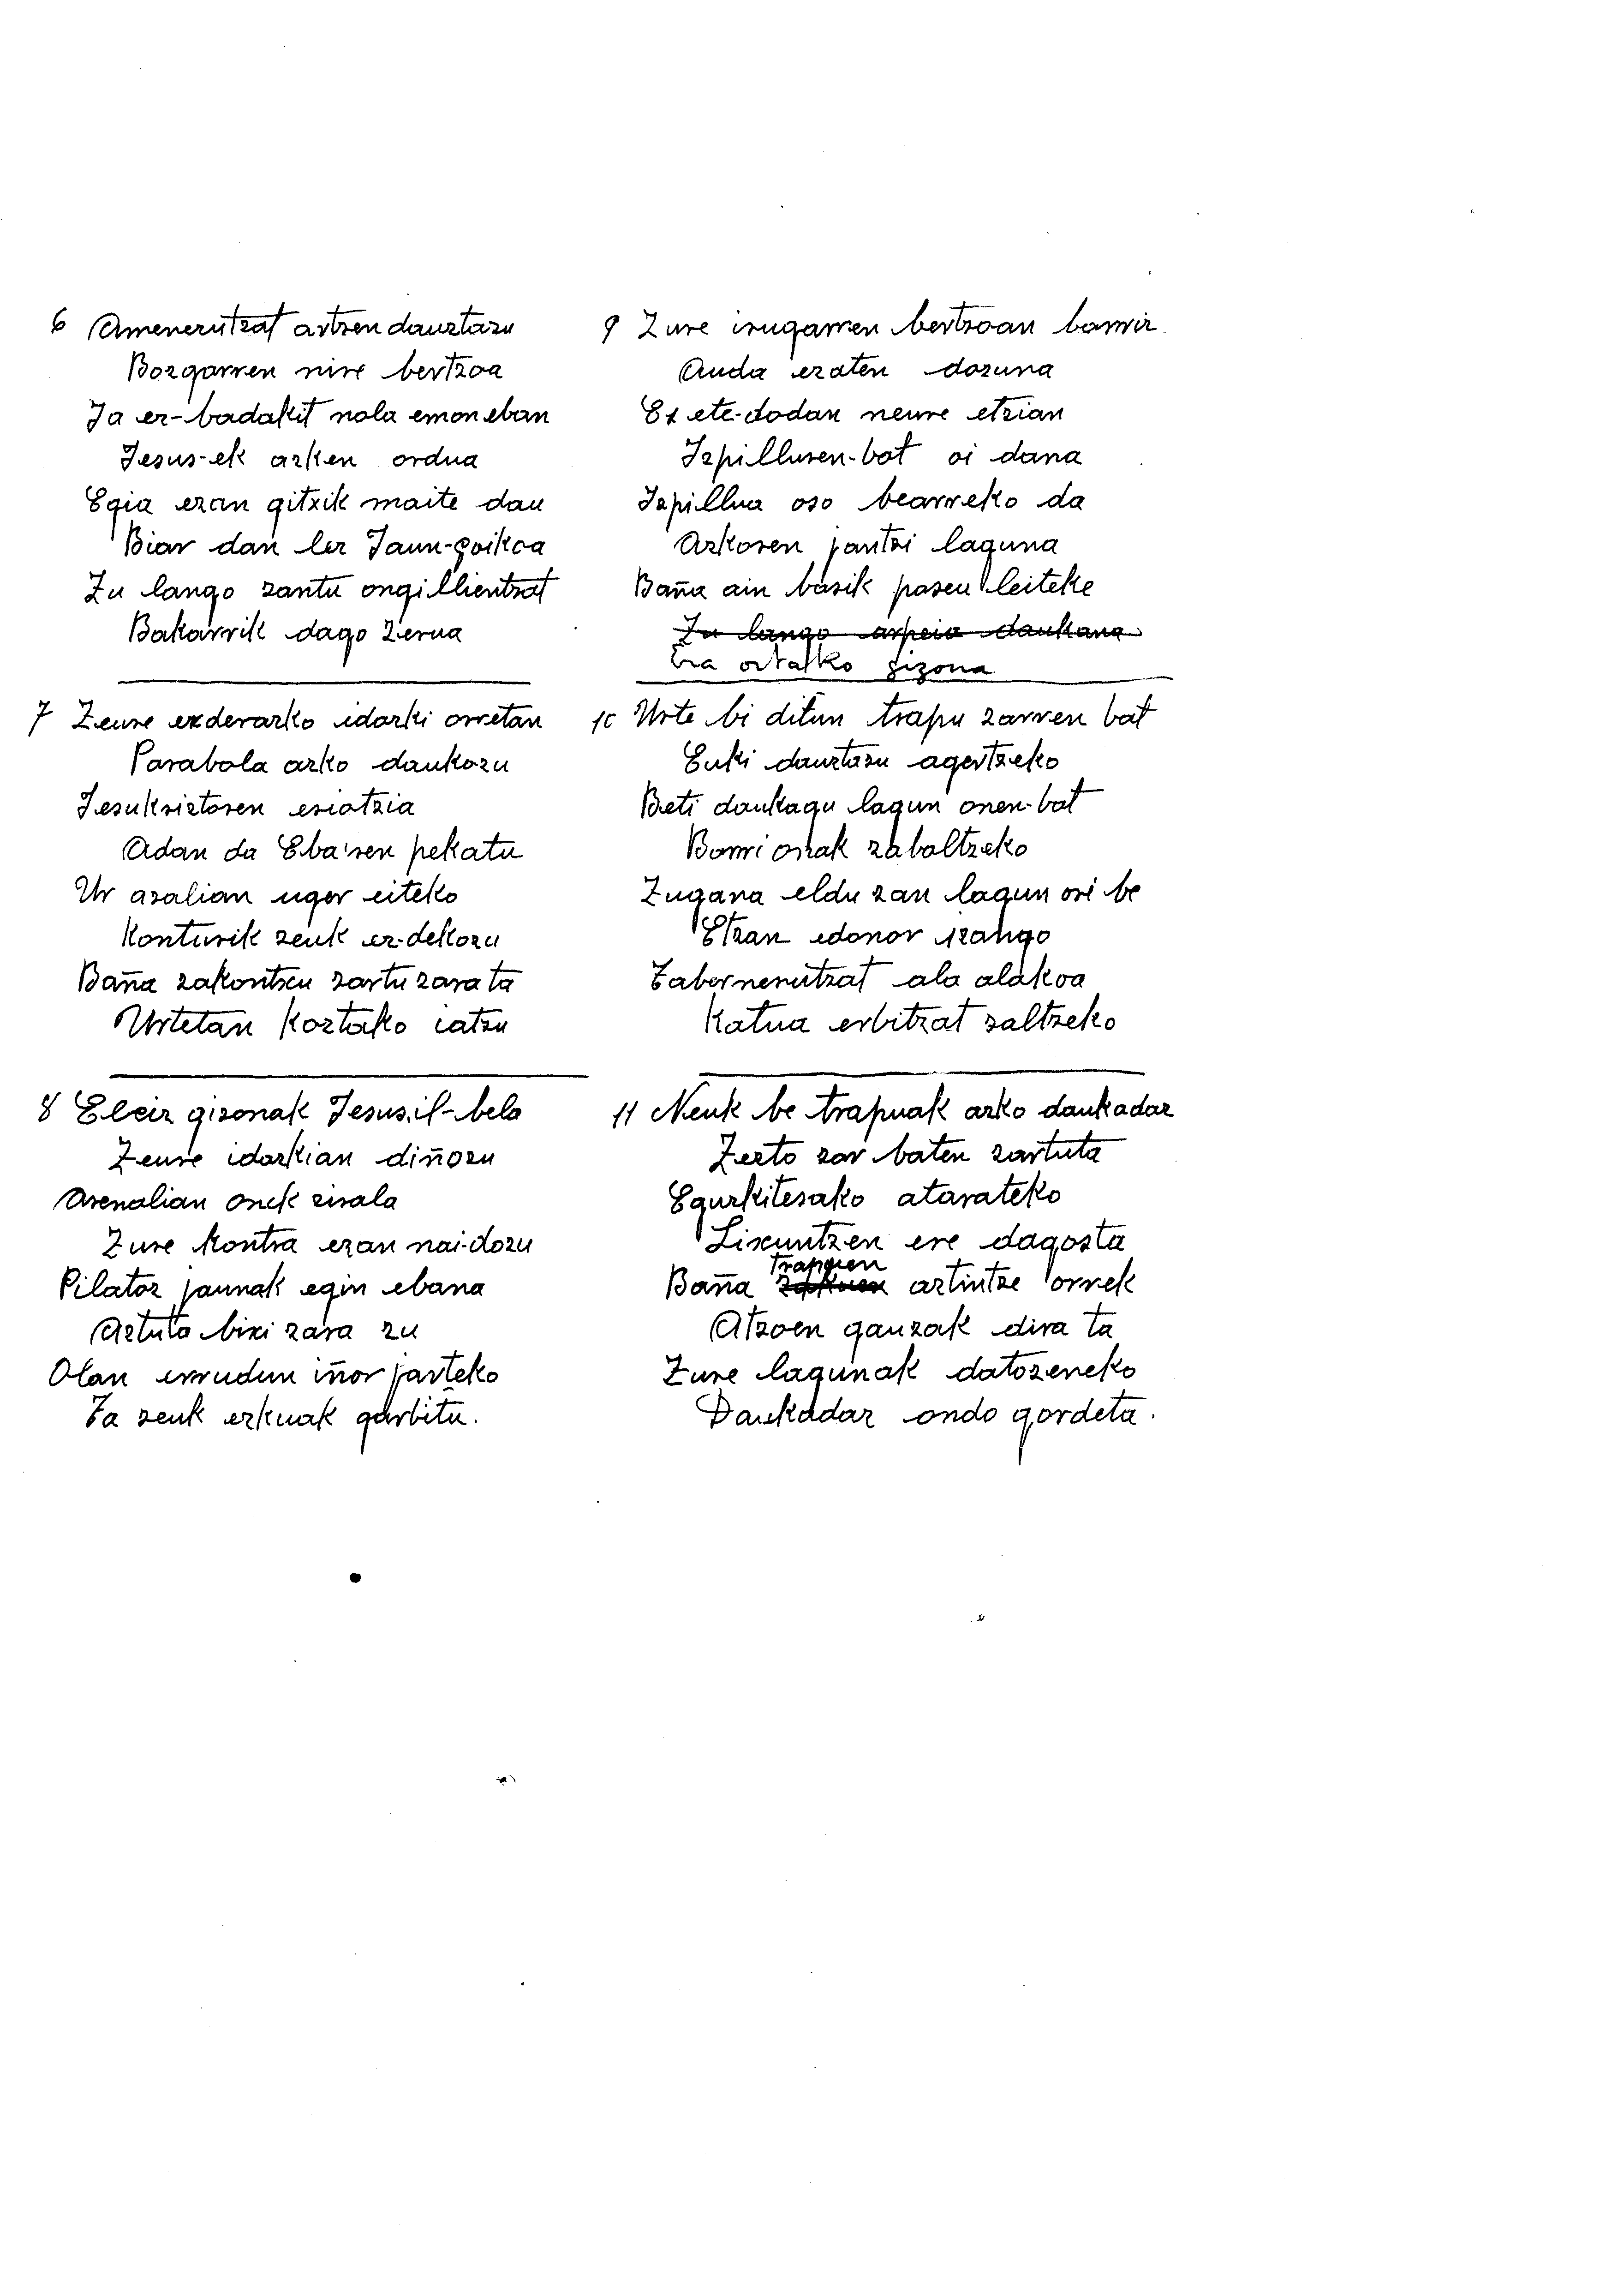 6 Amenerutzat artzen dauztazu
Bozgarren nire bertzoa
Ja ez-badakit nola emon eban
Jesus-ek azken ordua
Egia ezan gitxik maite dau
Biar dan lez Jaun-Goikoa
Zu lango zantu ongillientzat
Bakarrik dago zerua
7 Zeure exderarko idazki orretan
Parabola azko daukozu
Jesukriztoren eriotzia
Adan da Eba'ren pekatu
Ur azalian uger eiteko
Konturik zeuk ez-dekozu
Baña zakontzu zartu zara ta
Urtetan koztako iatzu
8 Eleiz gizonak Jesus, il-bela
Zeure idazkian diñozu
Arenalian onek zirala
Zure kontra ezan nai-dozu
Pilatoz jaunak egin ebana
Aztuta bizi zara zu
Olan errudun iñor jarteko
Ta zeuk ezkuak garbitu.
9 Zure irugarren bertzoan barriz
Auda ezaten dozuna
Ez ete-dodan neure etzian
Izpilluren-bat oi dana
Izpillua oso bearreko da
Azkoren jantzi laguna
Baña ain bazik pazeu leiteke
Zu lango arpeia daukana
Era ortalko gizona
10 Urte bi ditun trapu zarren bat
Euki dauztazu agertzeko
Beti daukagu lagun onen-bat
Barri onak zabaltzeko
Zugana eldu zan lagun ori be
Etzan edonor izango
Tabernerutzat ala alakoa
Katua erbitzat saltzeko
11 Neuk be trapuak azko daukadaz
Zezto zar baten zartuta
Egurkitzako atarateko
Lixuntzen ere dagozta
Trapuen
Baña zakuen aztintze orrek
Atzoen gauzak dira ta
Zure lagunak datozeneko
Daukadaz ondo gordeta.